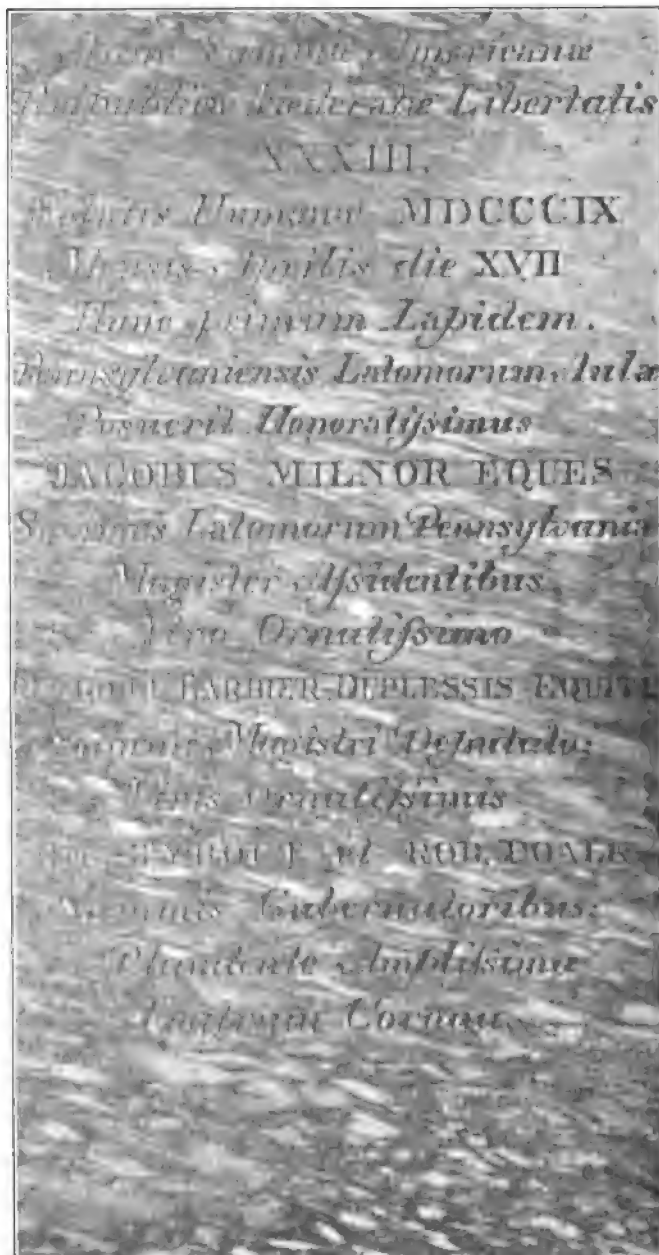 Americanæ
Reipublicæ Fœderatæ Libertatis
XXXIII.
Salutis Humanæ MDCCCIX
Mensis Aprilis die XVII
Hunc primum Lapidem.
Pennsylvaniensis Latomorum Aulæ
Posuerit Honoratissimus
JACOBUS MILNOR EQUES
Summus Latomorum Pennsylvaniæ
Magister Assidentibus,
Viro Ornatissimo
BARBIER-DUPLESSIS EQUITE
Magistri Deputato:
Viris Ornatissimis
et ROB. POALK
Gubernatoribus:
Plaudente Amplissima
Fratrum Corona.